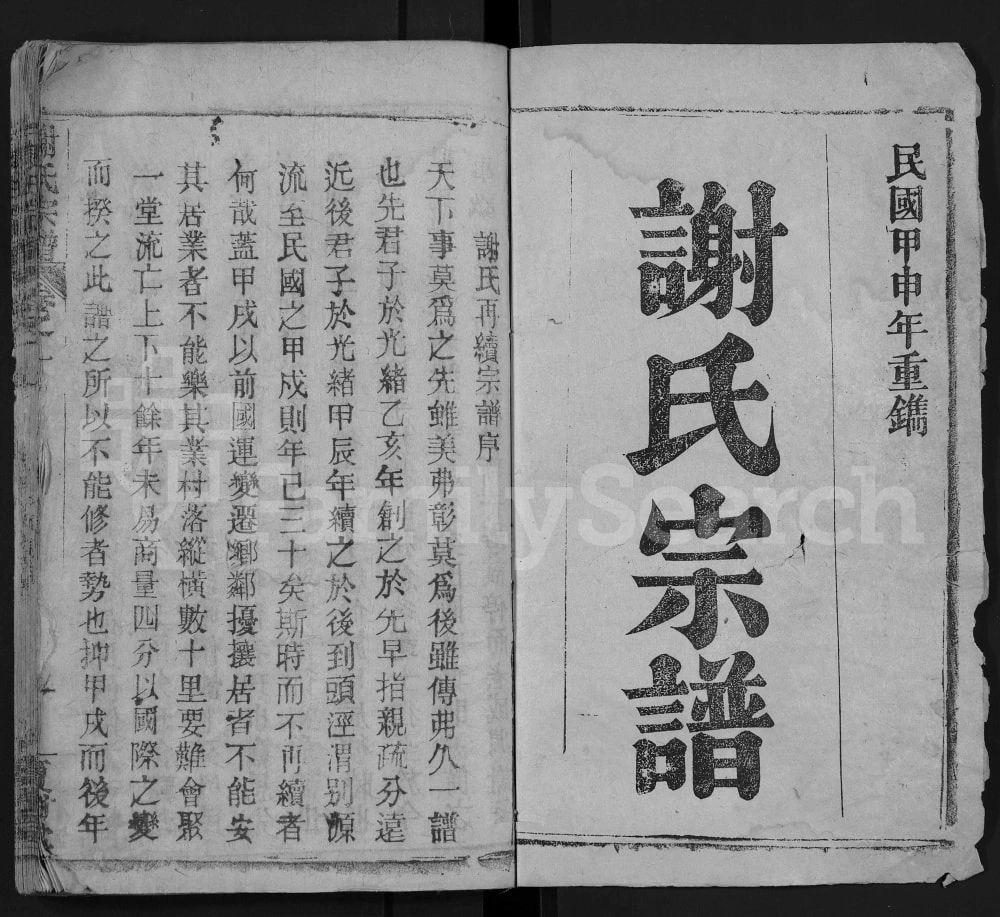 民國甲申年重鐫
謝氏宗譜
謝氏再續宗譜序
天下事莫爲之先雖美弗彰莫爲後雖傳弗久一譜
也先君子於光緒乙亥年創之於先早指親疏分遠
近後君子於光緒甲辰年續之於後到頭涇渭別源
流至民國之甲戍則年已三十矣斯時而不再續者
何哉蓋甲戍以前國運變遷鄉鄰擾攘居者不能安
其居業者不能樂其業村落縱橫數十里要難會聚
一堂流亡上下十餘年未易商量四分以國際之變
而揆之此譜之所以不能修者勢也抑甲戍而後年
謝氏宗譜
卷之一
FamilySearch